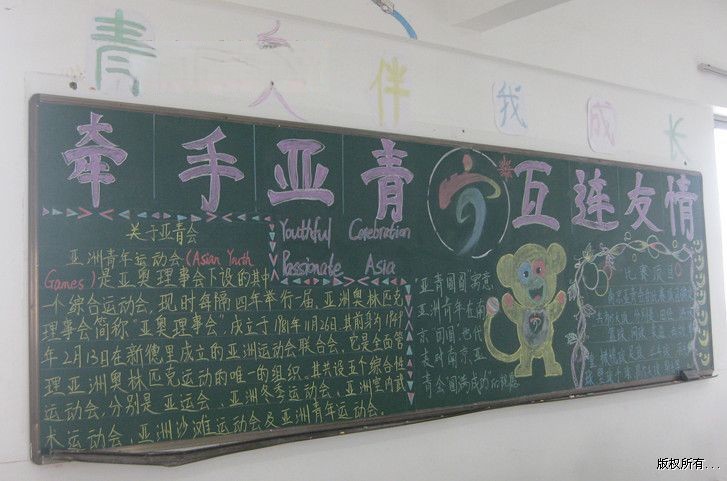 青 人 伴 我 成 长
牵手亚青 互连友情
关于亚青会
亚洲青年运动会(Asian Youth
Games)是亚奥理事会下设的其中
一个综合运动会,现时每隔四年举行一届.亚洲奥林匹克
理事会简称"亚奥理事会",成立于1981年11月26日.其前身为1949
年2月13日在新德里成立的亚洲运动会联合会,它是全面管
理亚洲奥林匹克运动的唯一的组织.其共设五个综合性
运动会,分别是亚运会、亚洲冬季运动会、亚洲室内武
术运动会、亚洲沙滩运动会及亚洲青年运动会.
Youthful Corebration
Passionate Asia
"亚青圆圆"寓意
亚洲青年在南
京"团圆",也代
表对南京亚
青会"圆满成功"的祝愿
比赛项目
版权所有...